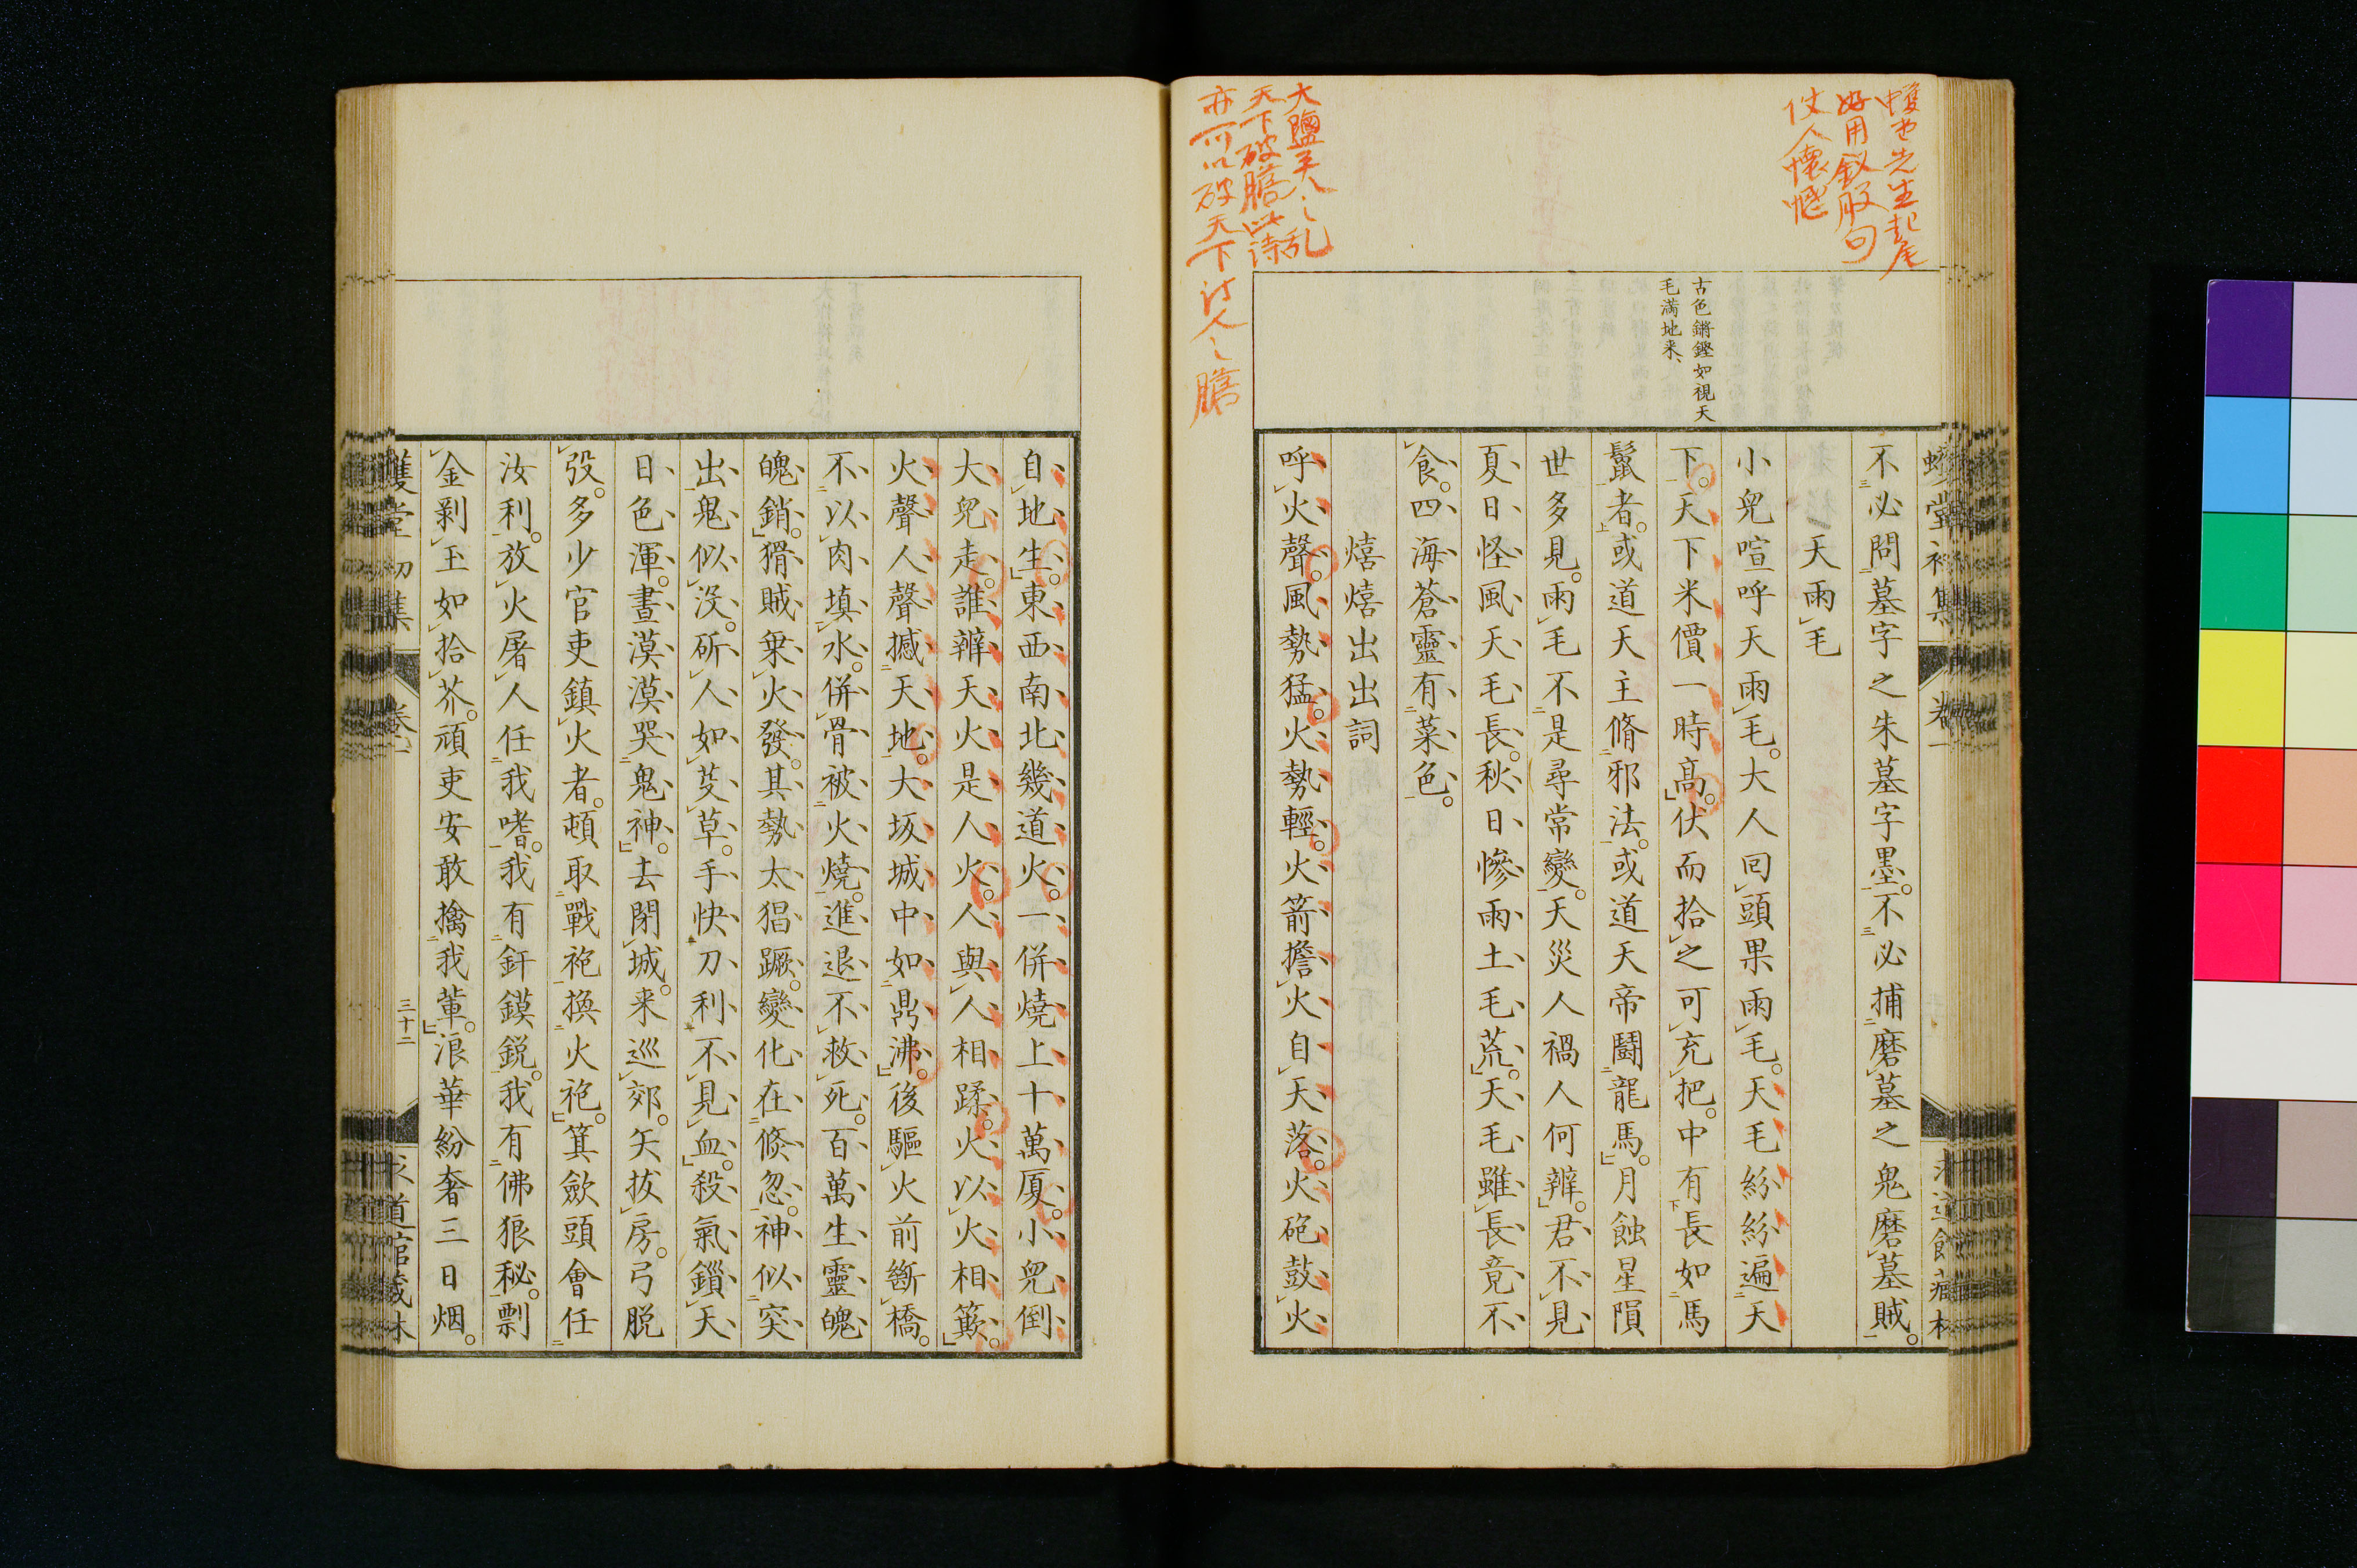 大鹽某人之乱
天下破膽此詩
亦可以破天下詩人之膽
古色鏘鏗如視天
毛満地来、
不必問墓字之朱墓字墨。不必捕磨墓之鬼磨墓賊。
天雨毛
小兒喧呼天雨毛。大人回頭果雨毛。天毛紛紛遍天
下。天下米價一時高。伏而拾之可充把。中有長如馬
鬣者。或道天主脩邪法。或道天帝鬪龍馬。月蝕星隕
世多見。雨毛不是尋常變。天災人禍人何辨。君不見
夏日怪風天毛長。秋日慘雨土毛荒。天毛雖長竟不
食。四海蒼靈有菜色。
熺熺出出詞
呼火聲。風勢猛。火勢輕。火箭擔火自天落。火砲鼓火
自地生。東西南北幾道火。一併燒上十萬厦。小兒倒
大兒走。誰辨天火是人火。人與人相蹂。火以火相簸。
火聲人聲撼天地。大坂城中如鼎沸。後驅火前斷橋。
不以肉填水。併骨被火燒。進退不救死。百萬生靈魄
魄銷。猾賊乗火發。其勢太猖蹶。變化在倏忽。神似突
出鬼似没。斫人如芟草。手快刀利不見血。殺氣鎻天
日色渾。晝漠漠哭鬼神。去閉城。来巡郊。矢拔房。弓脱
弢。多少官吏鎮火者。頓取戰袍換火袍。箕歛頭會任
汝利。放火屠人任我嗜。我有釬鏌鋭。我有佛狼秘。剽
金剥玉如拾芥。頑吏安敢擒我軰。浪華紛奢三日烟。
三十二